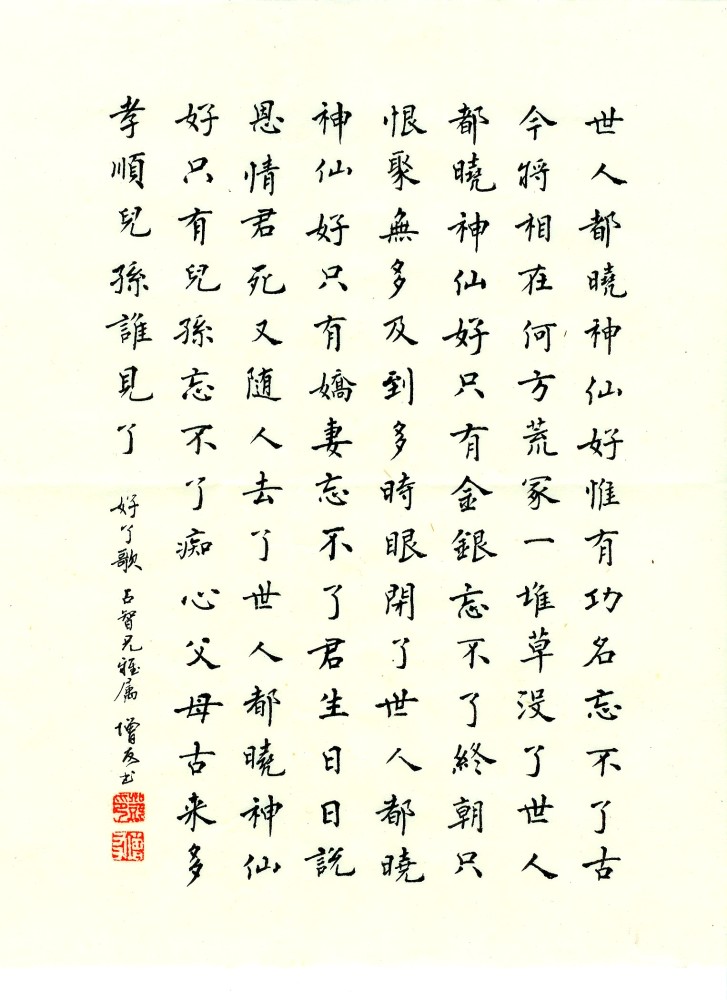 世人都曉神仙好惟有功名忘不了古
今將相在何方荒冢一堆草沒了世人
都曉神仙好只有金銀忘不了終朝只
恨聚無多及到多時眼閉了世人都曉
神仙好只有嬌妻忘不了君生日日説
恩情君死又随人去了世人都曉神仙
好只有兒孫忘不了痴心父母古来多
孝順兒孫誰見了
好了歌 占智兄雅属 增友书